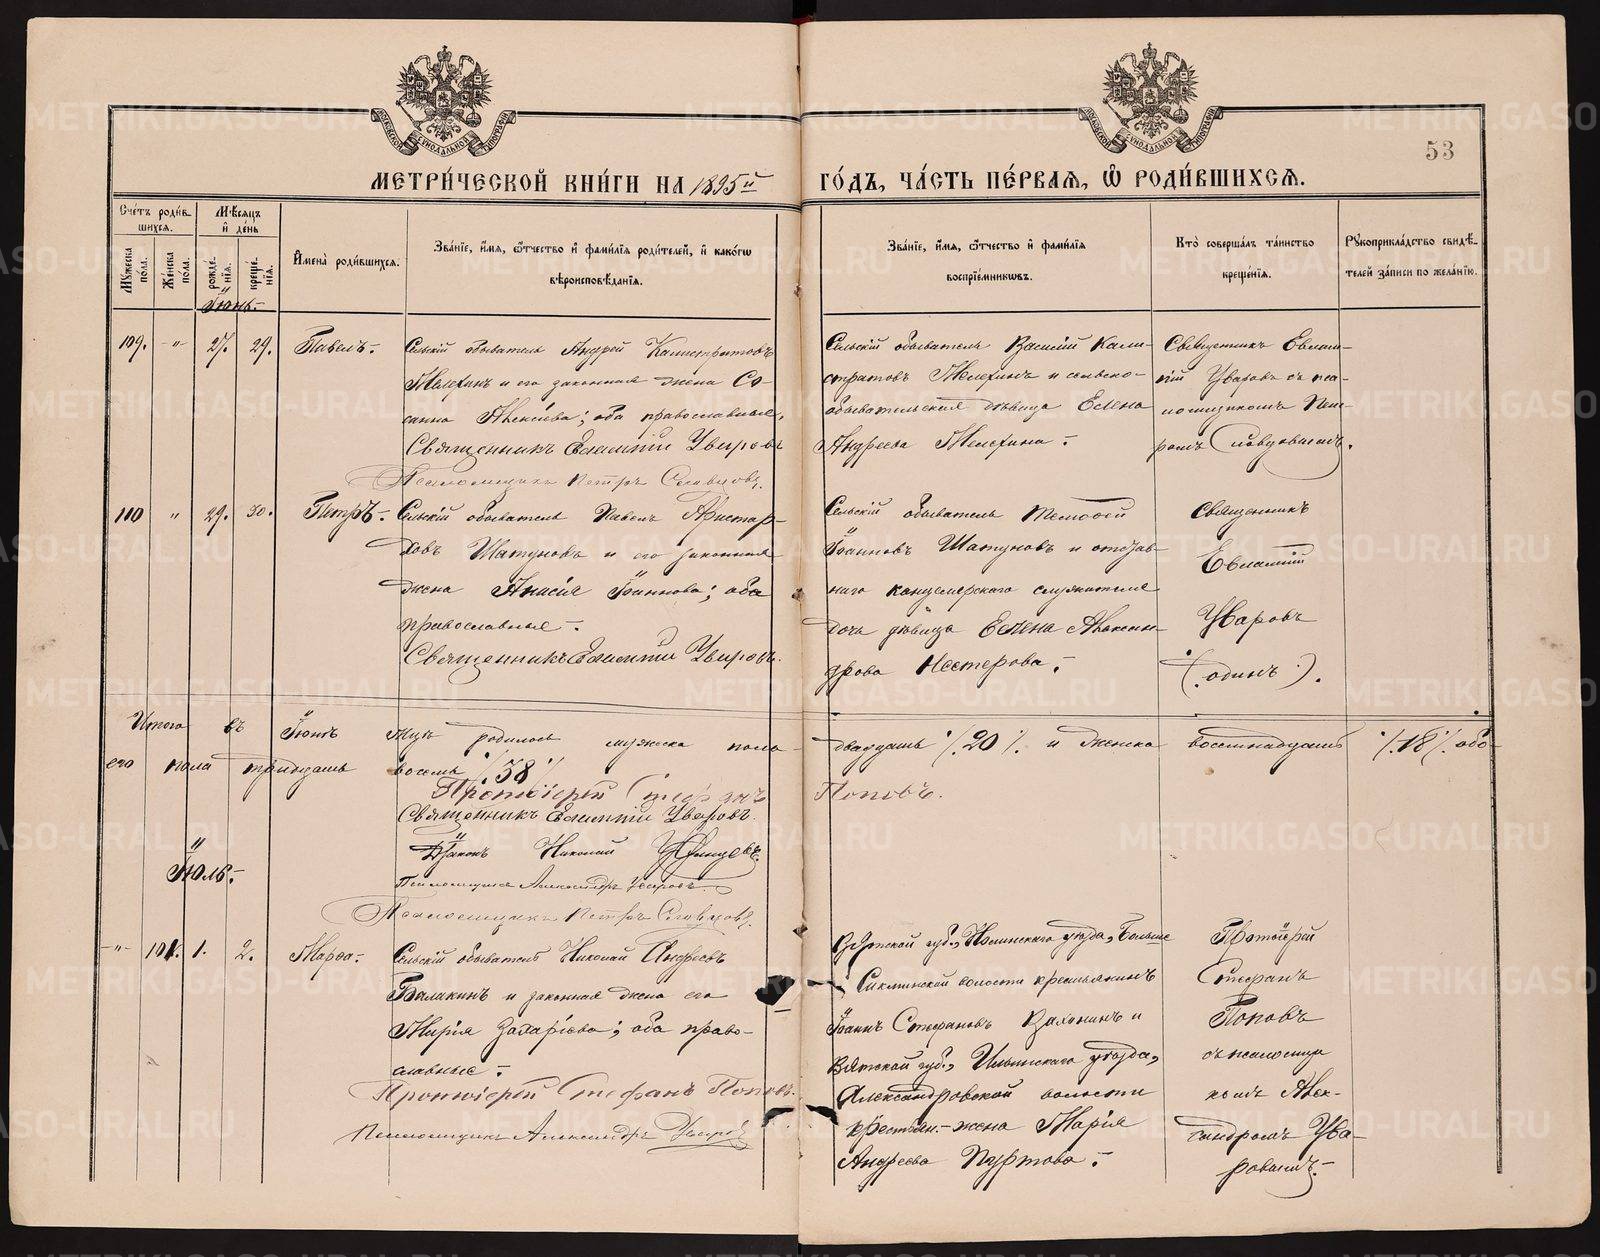 53
МЕТРИ́ЧЕСКОЙ КНИ́ГИ НА 1895й ГО́ДЪ, ЧА́СТЬ ПЕ́РВАЯ, Ѡ РОДИ́ВШИХСЯ.
Сче́тъ роди́вшихся.
Мѣ́сяцъ и де́нь
Му́жеска пола.
Же́нска пола.
рожде́нїя.
креще́нїя.
Имена̀ роди́вшихся.
Зва́нїе, и́мя, ѻ́тчество и фами́лїя роди́телей, и како́гѡ вѣроисповѣ́данїя.
Зва́нїе, и́мя, ѻ́тчество и фами́лїя воспрїе́мникѡвъ.
Кто̀ соверша́лъ та́инство креще́нїя.
Рꙋкоприкла́дство свидѣ́телей за́писи по жела́нїю.
Іюнь.
109. -"- 27. 29. Павелъ.
Сельскій обыватель Андрей Калистратовъ
Мелехинъ и его законная жена Со-
санна Алексѣева; оба православные.
Священникъ Евлампій Уваровъ
Псаломщикъ Петръ Словцовъ.
Сельскій обыватель Василій Кали-
стратовъ Мелехинъ и сельско-
обывательская дѣвица Елена
Андреева Мелехина.
Священникъ Евлам-
пій Уваровъ съ пса-
ломщикомъ Пет-
ромъ Словцовымъ.
110 " 29. 30. Петръ.
Сельскій обыватель Павелъ Аристар-
ховъ Шатуновъ и его законная
жена Анисія Іоаннова; оба
православные.
Священникъ Евлампій Уваровъ.
Сельскій обыватель
Іоанновъ Шатуновъ и отстав-
наго канцелярскаго служителя
дочь дѣвица Елена Алексан-
дрова Нестерова.
Священникъ
Евлампій
Уваровъ
(одинъ).
Итого въ Іюнѣ мцѣ родилось мужеска пола двадцать /20/ и женска восемнадцать /18/ обо-
его пола тридцать восемь /38/
Протоіерей Стефанъ Поповъ.
Священникъ Евлампій Уваровъ.
Діаконъ Николай
Псаломщикъ Александръ Уваровъ
Псаломщикъ Петръ Словцовъ.
Іюль.
-"- 101. 1. 2. Марѳа.
Сельскій обыватель Николай Андреевъ
Балакинъ и законная жена его
Марія Захаріева; оба право-
славные.
Протоіерей Стефанъ Поповъ.
Псаломщикъ Александръ Уваровъ
Вятской губ., Нолинскаго уѣзда, Больше
волости крестьянинъ
Іоаннъ Стефановъ и
Вятской губ., уѣзда,
Александровской волости
крестьян. жена Марія
Андреева Пуртова.
Протоіерей
Стефанъ
Поповъ
съ псаломщи
комъ Алек-
сандромъ Ува-
ровымъ.
METRIKI.GASO-URAL.RU